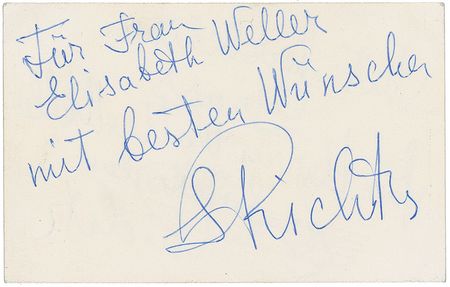 Für Frau
Elisabeth Weller
mit besten Wünschen
SRichter